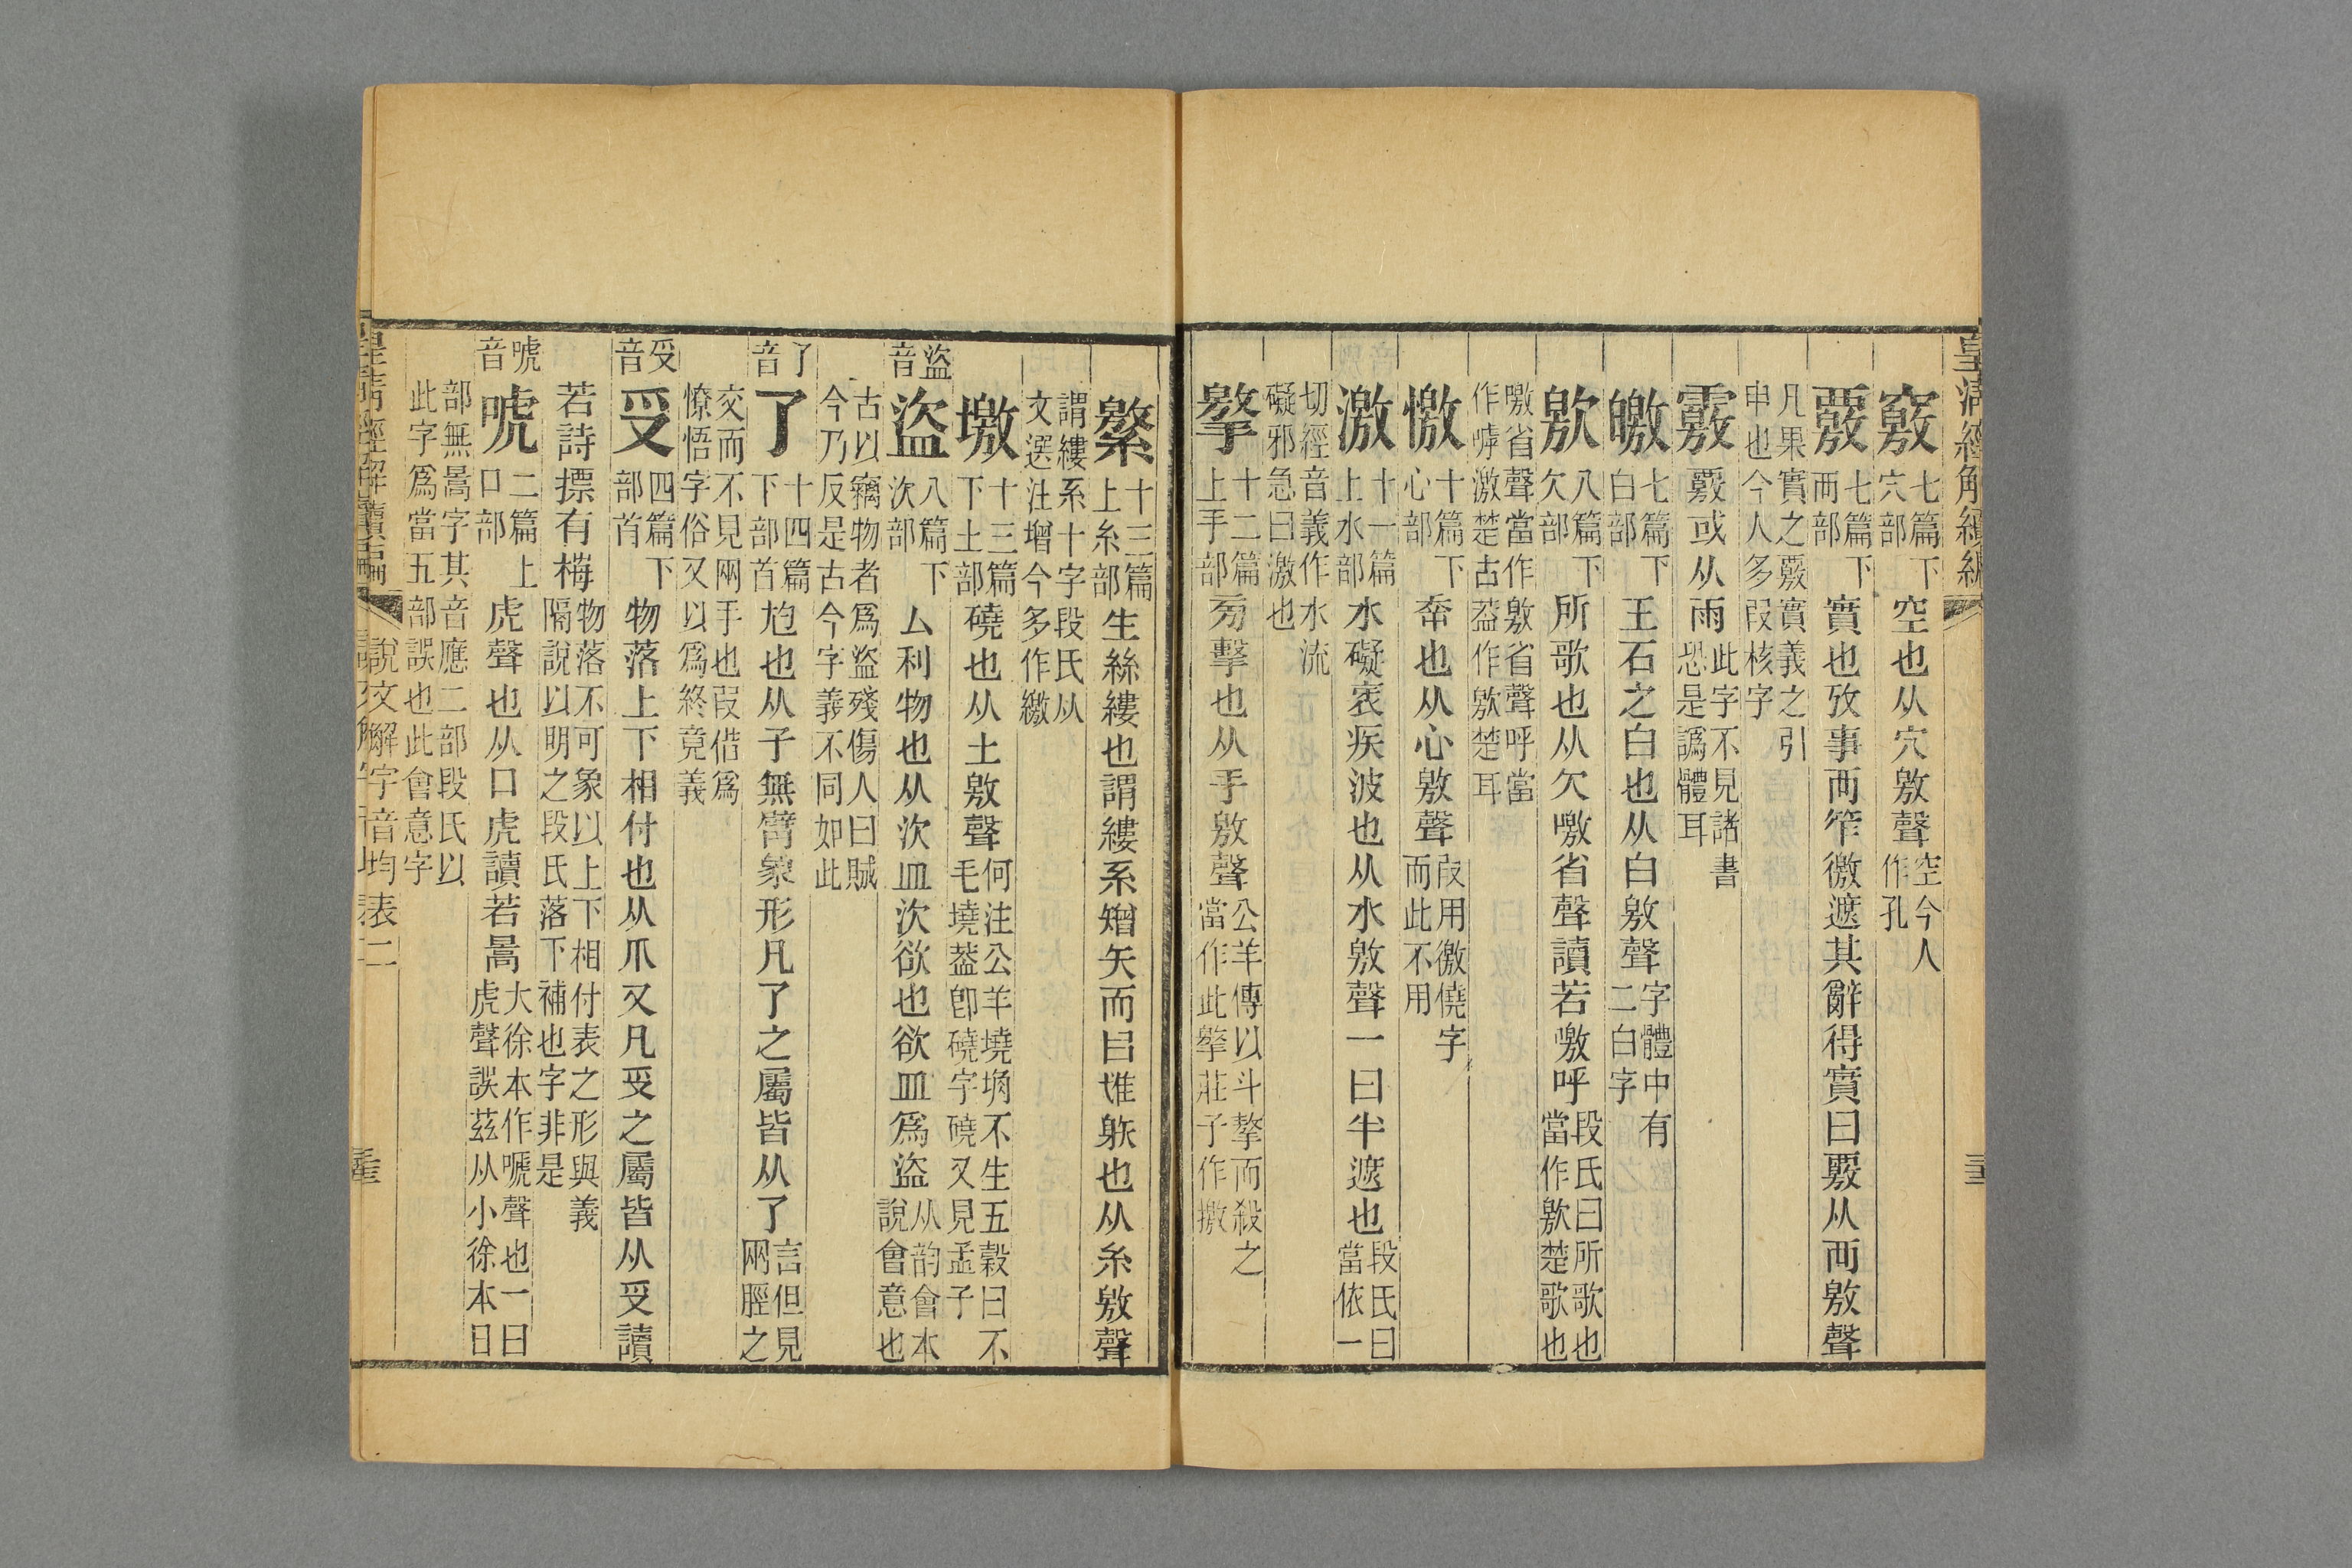 皇清經解續編
竅七篇下穴部空也从穴敫聲空今人作孔
覈七篇下襾部實也攷事襾笮徼遮其辭得實曰覈从襾敫聲
凡果實之覈實義之引申也今人多叚核字
霚覈或从雨此字不見諸書恐是譌體耳
皦七篇下白部玉石之白也从白敫聲字體中有二白字
歍八篇下欠部所歌也从欠噭省聲讀若噭呼段氏曰所歌也當作歍楚歌也
噭省聲當作敫省聲呼當作嘑激楚古葢作歍楚耳
憿十篇下心部㚔也从心敫聲叚用徼僥字而此不用
激十一篇上水部水礙衺疾波也从水敫聲一曰半遮也段氏曰當依一
切經音義作水流礙邪急曰激也
擎十二篇上手部㫄擊也从手敫聲公羊傳以斗摮而殺之當作此擎莊子作撽
繁十三篇上糸部生絲縷也謂縷系矰矢而㠯隿躲也从糸敫聲
謂縷系十字段氏从文選注增今多作繳
墽十三篇下土部磽也从土敫聲何注公羊墝埆不生五穀曰不毛墝葢卽磽字磽又見孟子
盜音
盜八篇下㳄部厶利物也从㳄皿㳄欲也欲皿爲盜从韵會本說會意也
古以竊物者爲盜殘傷人曰賊今乃反是古今字義不同如此
了音
了十四篇下部首尥也从子無臂象形凡了之屬皆从了言但見兩脛之
交而不見兩手也叚借爲憭悟字俗又以爲終竟義
𠬪音
𠬪四篇下部首物落上下相付也从爪又凡𠬪之屬皆从𠬪讀
若詩摽有梅物落不可象以上下相付表之形與義隔說以明之段氏落下補也字非是
唬音
唬二篇上口部虎聲也从口虎讀若暠大徐本作嗁聲也一曰虎聲誤茲从小徐本曰
部無暠字其音應二部段氏以此字爲當五部誤也此會意字
皇清經解續編 說文解字音均表二